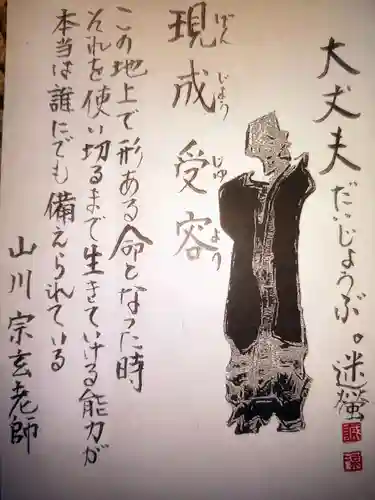 大丈夫だいじょうぶ。迷螢
現成受容
げんじょうじゅよう
この地上で形ある命となった時
それを使い切るまで生きていける能力が
本当は誰にでも備えられている
山川宗玄老師